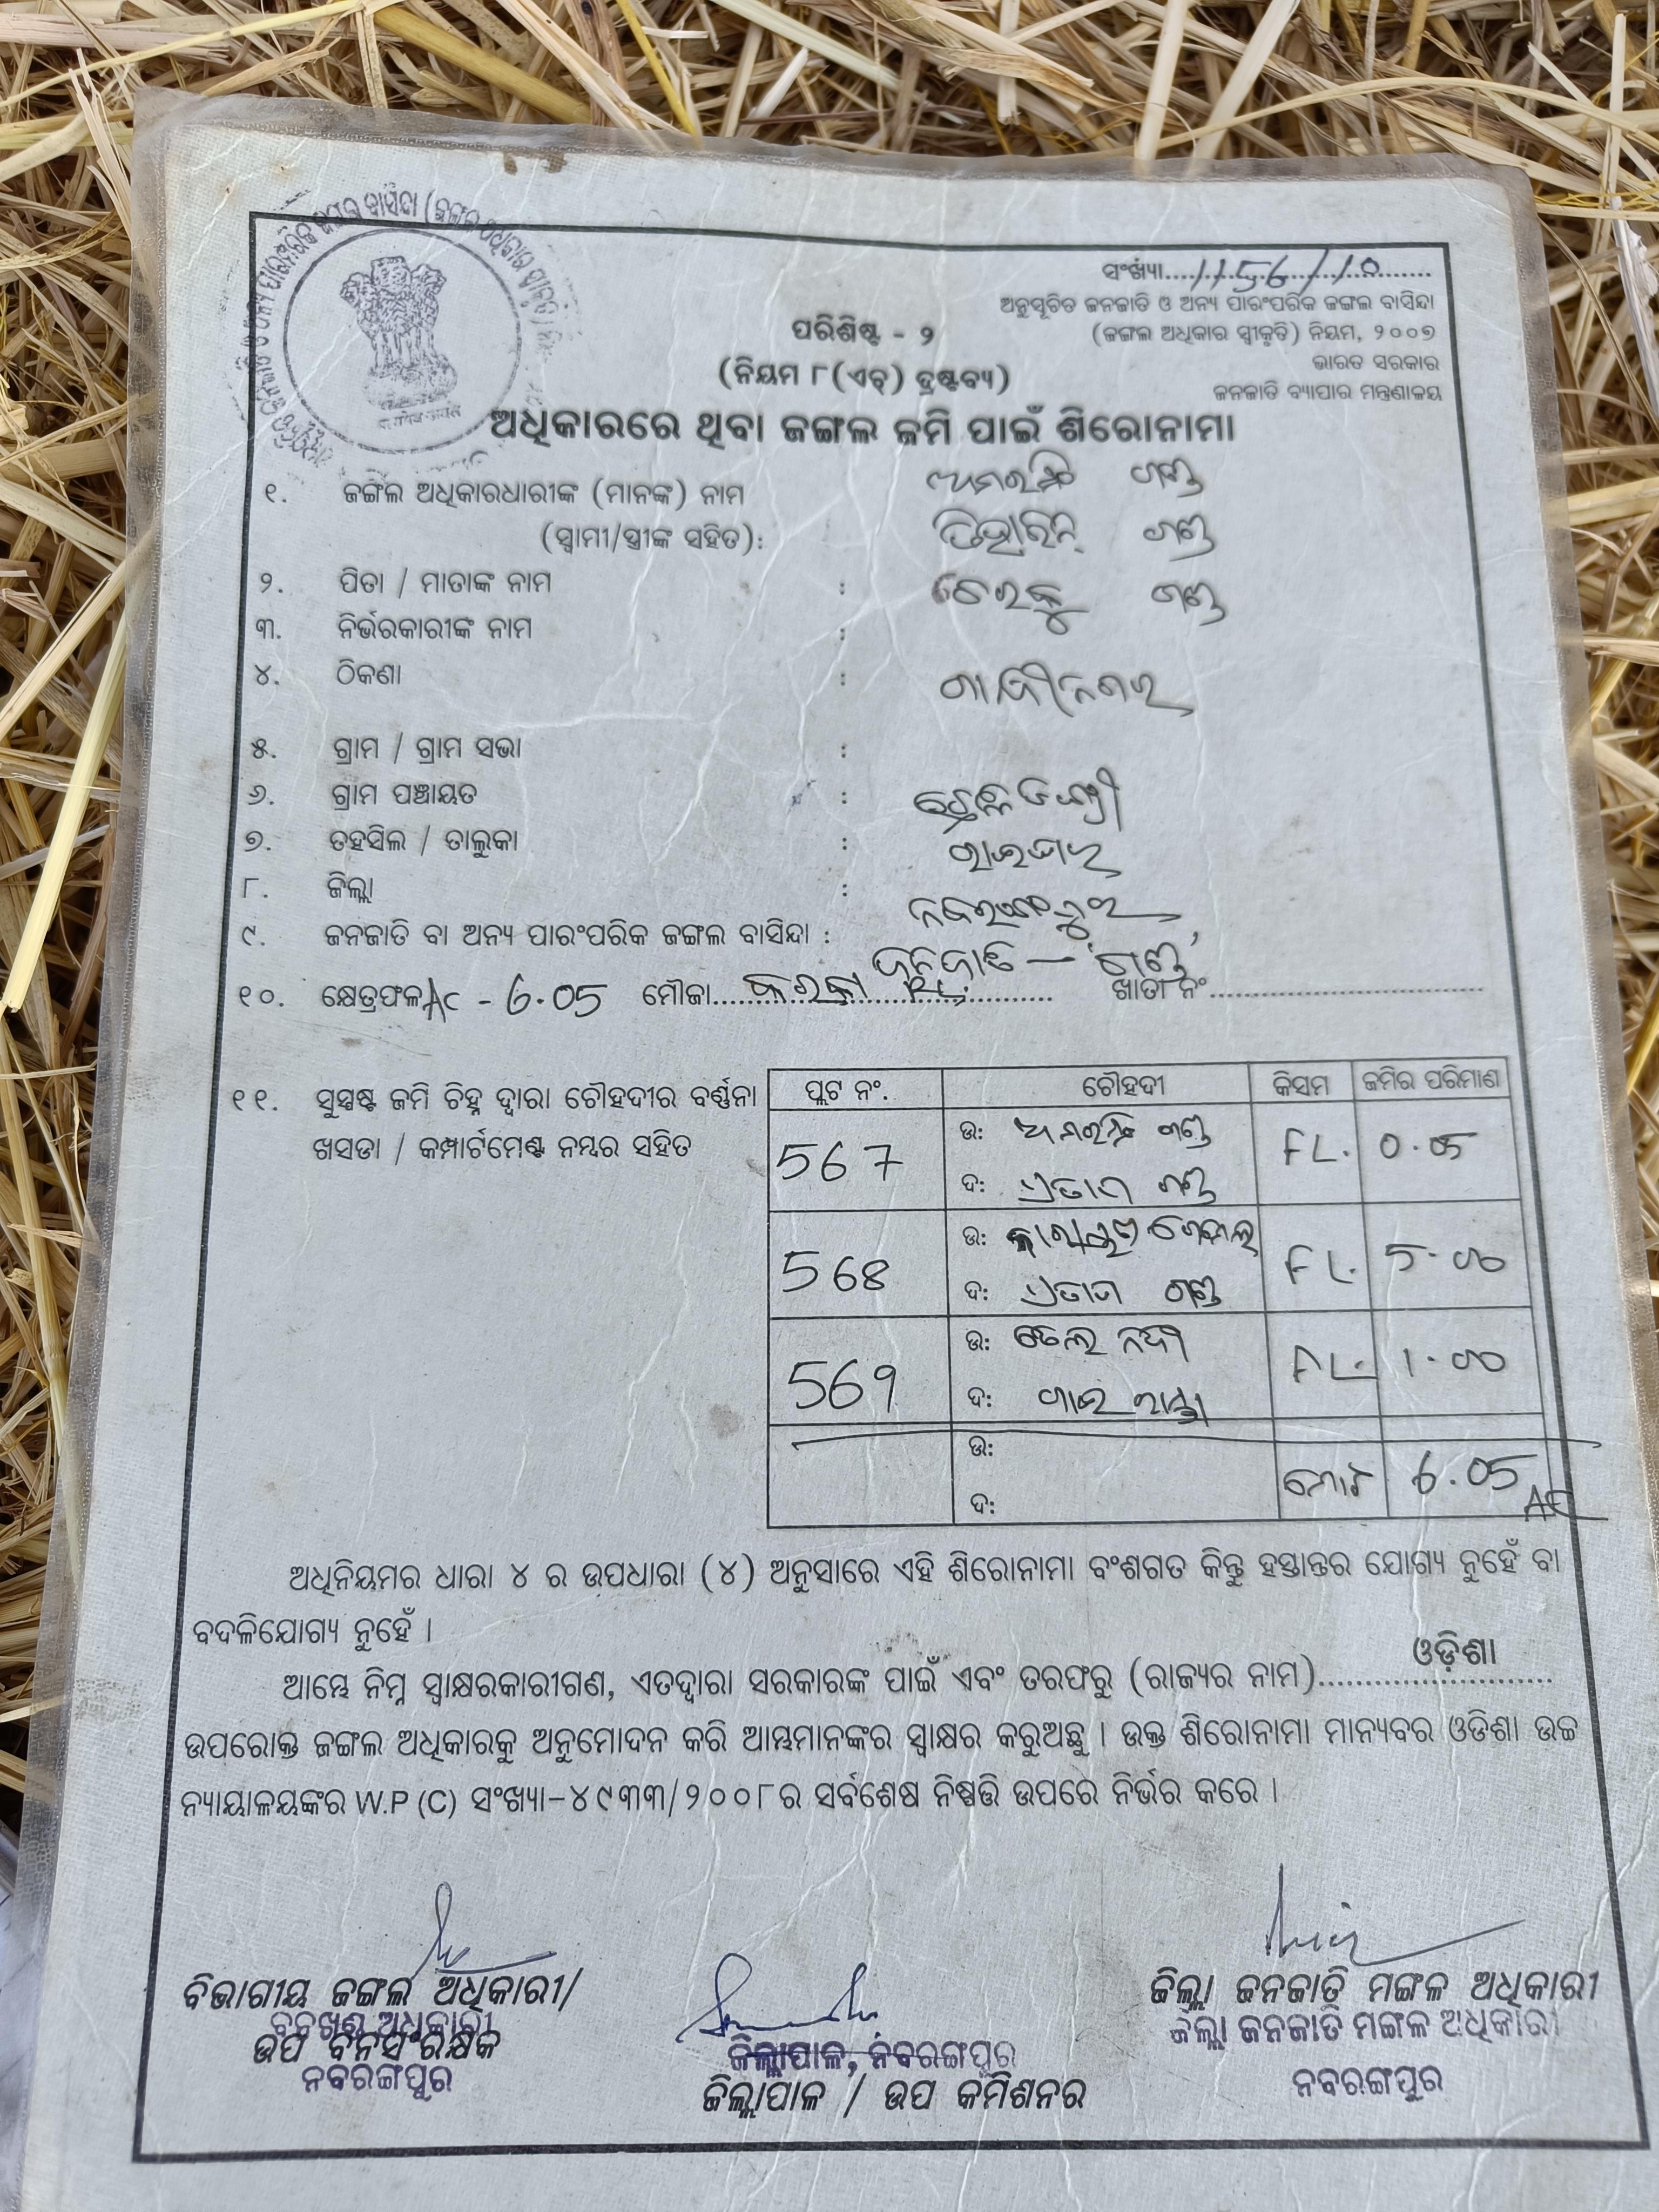 ସଂଖ୍ୟା....1156/10
ଅନୁସୂଚିତ ଜନଜାତି ଓ ଅନ୍ୟ ପାରଂପରିକ ଜଙ୍ଗଲ ବାସିନ୍ଦା
(ଜଙ୍ଗଲ ଅଧିକାର ସ୍ୱୀକୃତି) ନିୟମ, ୨୦୦୭
ଭାରତ ସରକାର
ଜନଜାତି ବ୍ୟାପାର ମନ୍ତ୍ରଣାଳୟ
ପରିଶିଷ୍ଟ - ୨
(ନିୟମ ୮(ଏଚ୍) ଦ୍ରଷ୍ଟବ୍ୟ)
ଅଧିକାରରେ ଥିବା ଜଙ୍ଗଲ ଜମି ପାଇଁ ଶିରୋନାମା
୧. ଜଙ୍ଗଲ ଅଧିକାରଧାରୀଙ୍କ (ମାନଙ୍କ) ନାମ ଗଣ୍ଡ
(ସ୍ୱାମୀ/ସ୍ତ୍ରୀଙ୍କ ସହିତ): ଗଣ୍ଡ
୨. ପିତା / ମାତାଙ୍କ ନାମ : ଗଣ୍ଡ
୩. ନିର୍ଭରକାରୀଙ୍କ ନାମ :
୪. ଠିକଣା : ଗାନ୍ଧୀନଗର
୫. ଗ୍ରାମ / ଗ୍ରାମ ସଭା :
୬. ଗ୍ରାମ ପଞ୍ଚାୟତ :
୭. ତହସିଲ / ତାଲୁକା : ରାଇଘର
୮. ଜିଲ୍ଲା : ନବରଙ୍ଗପୁର
୯. ଜନଜାତି ବା ଅନ୍ୟ ପାରଂପରିକ ଜଙ୍ଗଲ ବାସିନ୍ଦା : ଜନଜାତି — 'ଗଣ୍ଡ'
୧୦. କ୍ଷେତ୍ରଫଳ Ac - 6.05 ମୌଜା.... ଖାତା ନଂ....
୧୧. ସୁସ୍ପଷ୍ଟ ଜମି ଚିହ୍ନ ଦ୍ୱାରା ଚୌହଦୀର ବର୍ଣ୍ଣନା
ଖସଡା / କମ୍ପାର୍ଟମେଣ୍ଟ ନମ୍ବର ସହିତ
ପ୍ଲଟ ନଂ. ଚୌହଦୀ କିସମ ଜମିର ପରିମାଣ
567 ଉ: ଗଣ୍ଡ FL. 0.05
ଦ: ପ୍ରତାପ ଗଣ୍ଡ
568 ଉ: FL. 5.00
ଦ: ପ୍ରତାପ ଗଣ୍ଡ
569 ଉ: ତେଲ ନଦୀ FL. 1.00
ଦ: ଗାଇ ରାସ୍ତା
ଉ: ମୋଟ 6.05 AC
ଦ:
ଅଧିନିୟମର ଧାରା ୪ ର ଉପଧାରା (୪) ଅନୁସାରେ ଏହି ଶିରୋନାମା ବଂଶଗତ କିନ୍ତୁ ହସ୍ତାନ୍ତର ଯୋଗ୍ୟ ନୁହେଁ ବା
ବଦଳିଯୋଗ୍ୟ ନୁହେଁ ।
ଆମ୍ଭେ ନିମ୍ନ ସ୍ୱାକ୍ଷରକାରୀଗଣ, ଏତଦ୍ୱାରା ସରକାରଙ୍କ ପାଇଁ ଏବଂ ତରଫରୁ (ରାଜ୍ୟର ନାମ)....ଓଡ଼ିଶା
ଉପରୋକ୍ତ ଜଙ୍ଗଲ ଅଧିକାରକୁ ଅନୁମୋଦନ କରି ଆମ୍ଭମାନଙ୍କର ସ୍ୱାକ୍ଷର କରୁଅଛୁ । ଉକ୍ତ ଶିରୋନାମା ମାନ୍ୟବର ଓଡିଶା ଉଚ୍ଚ
ନ୍ୟାୟାଳୟଙ୍କର W.P (C) ସଂଖ୍ୟା-୪୯୩୩/୨୦୦୮ର ସର୍ବଶେଷ ନିଷ୍ପତ୍ତି ଉପରେ ନିର୍ଭର କରେ ।
ବିଭାଗୀୟ ଜଙ୍ଗଲ ଅଧିକାରୀ/
ବନଖଣ୍ଡ ଅଧିକାରୀ
ଉପ ବନସଂରକ୍ଷକ
ନବରଙ୍ଗପୁର
ଜିଲ୍ଲାପାଳ, ନବରଙ୍ଗପୁର
ଜିଲ୍ଲାପାଳ / ଉପ କମିଶନର
ଜିଲ୍ଲା ଜନଜାତି ମଙ୍ଗଳ ଅଧିକାରୀ
ଜିଲ୍ଲା ଜନଜାତି ମଙ୍ଗଳ ଅଧିକାରୀ
ନବରଙ୍ଗପୁର